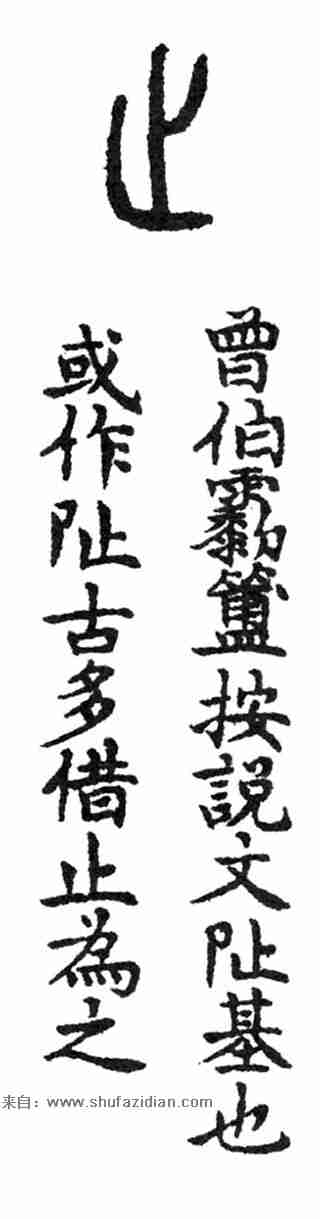 止
曾伯霥簠按說文阯基也
或作阯古多借止為之
来自：www.shufazidian.com